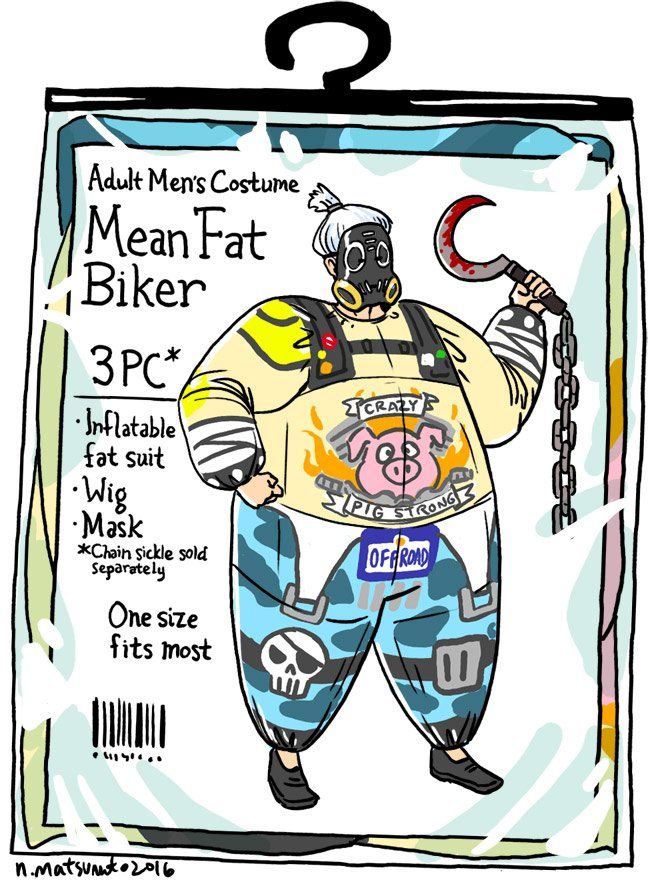 Adult Men's Costume
Mean Fat
Biker
3PC*
· Inflatable
fat suit
· Wig
· Mask
*Chain sickle sold
separately
One size
fits most
CRAZY
PIG STRONG
OFFROAD
n. matsumoto 2016